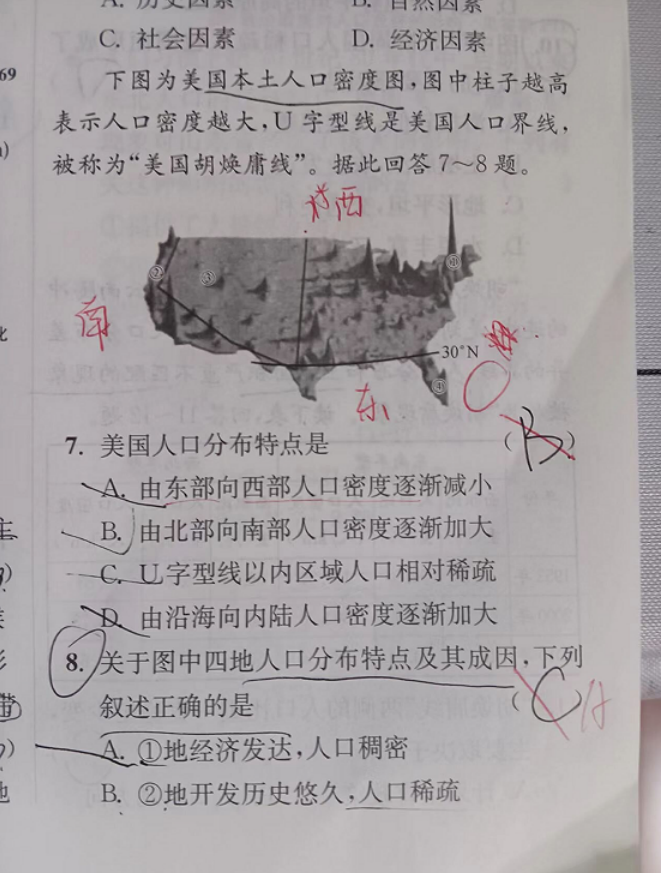 A. 历史因素 B. 自然因素
C. 社会因素 D. 经济因素
69
下图为美国本土人口密度图,图中柱子越高
表示人口密度越大,U字型线是美国人口界线,
被称为“美国胡焕庸线”。据此回答7～8题。
西
①
② ③
南
30°N
④
东
7. 美国人口分布特点是 (B)
A. 由东部向西部人口密度逐渐减小
B. 由北部向南部人口密度逐渐加大
C. U字型线以内区域人口相对稀疏
D. 由沿海向内陆人口密度逐渐加大
8. 关于图中四地人口分布特点及其成因,下列
叙述正确的是 (C) A
A. ①地经济发达,人口稠密
B. ②地开发历史悠久,人口稀疏